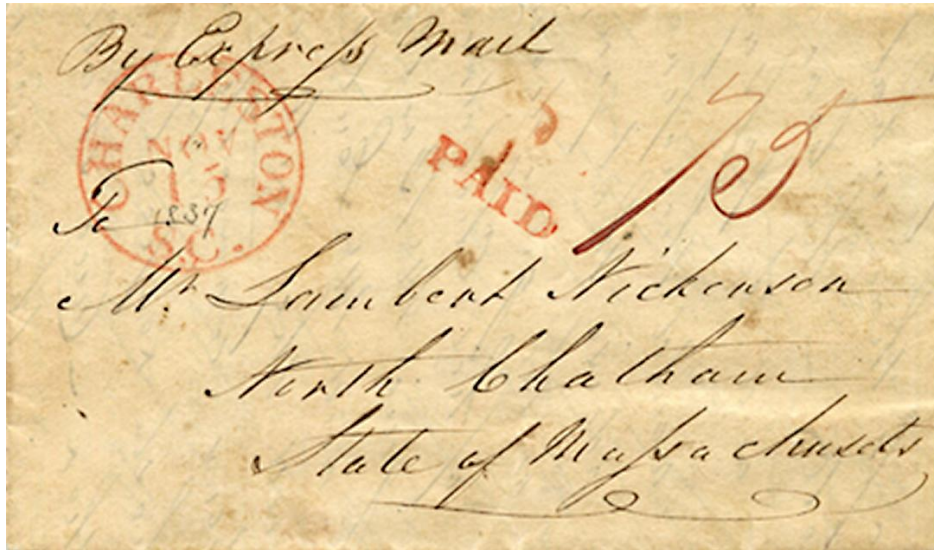 By Express Mail
CHARLESTON
NOV
15
1837
S.C.
PAID
75
To
Mr. Lambert Nickerson
North Chatham
State of Massachusetts